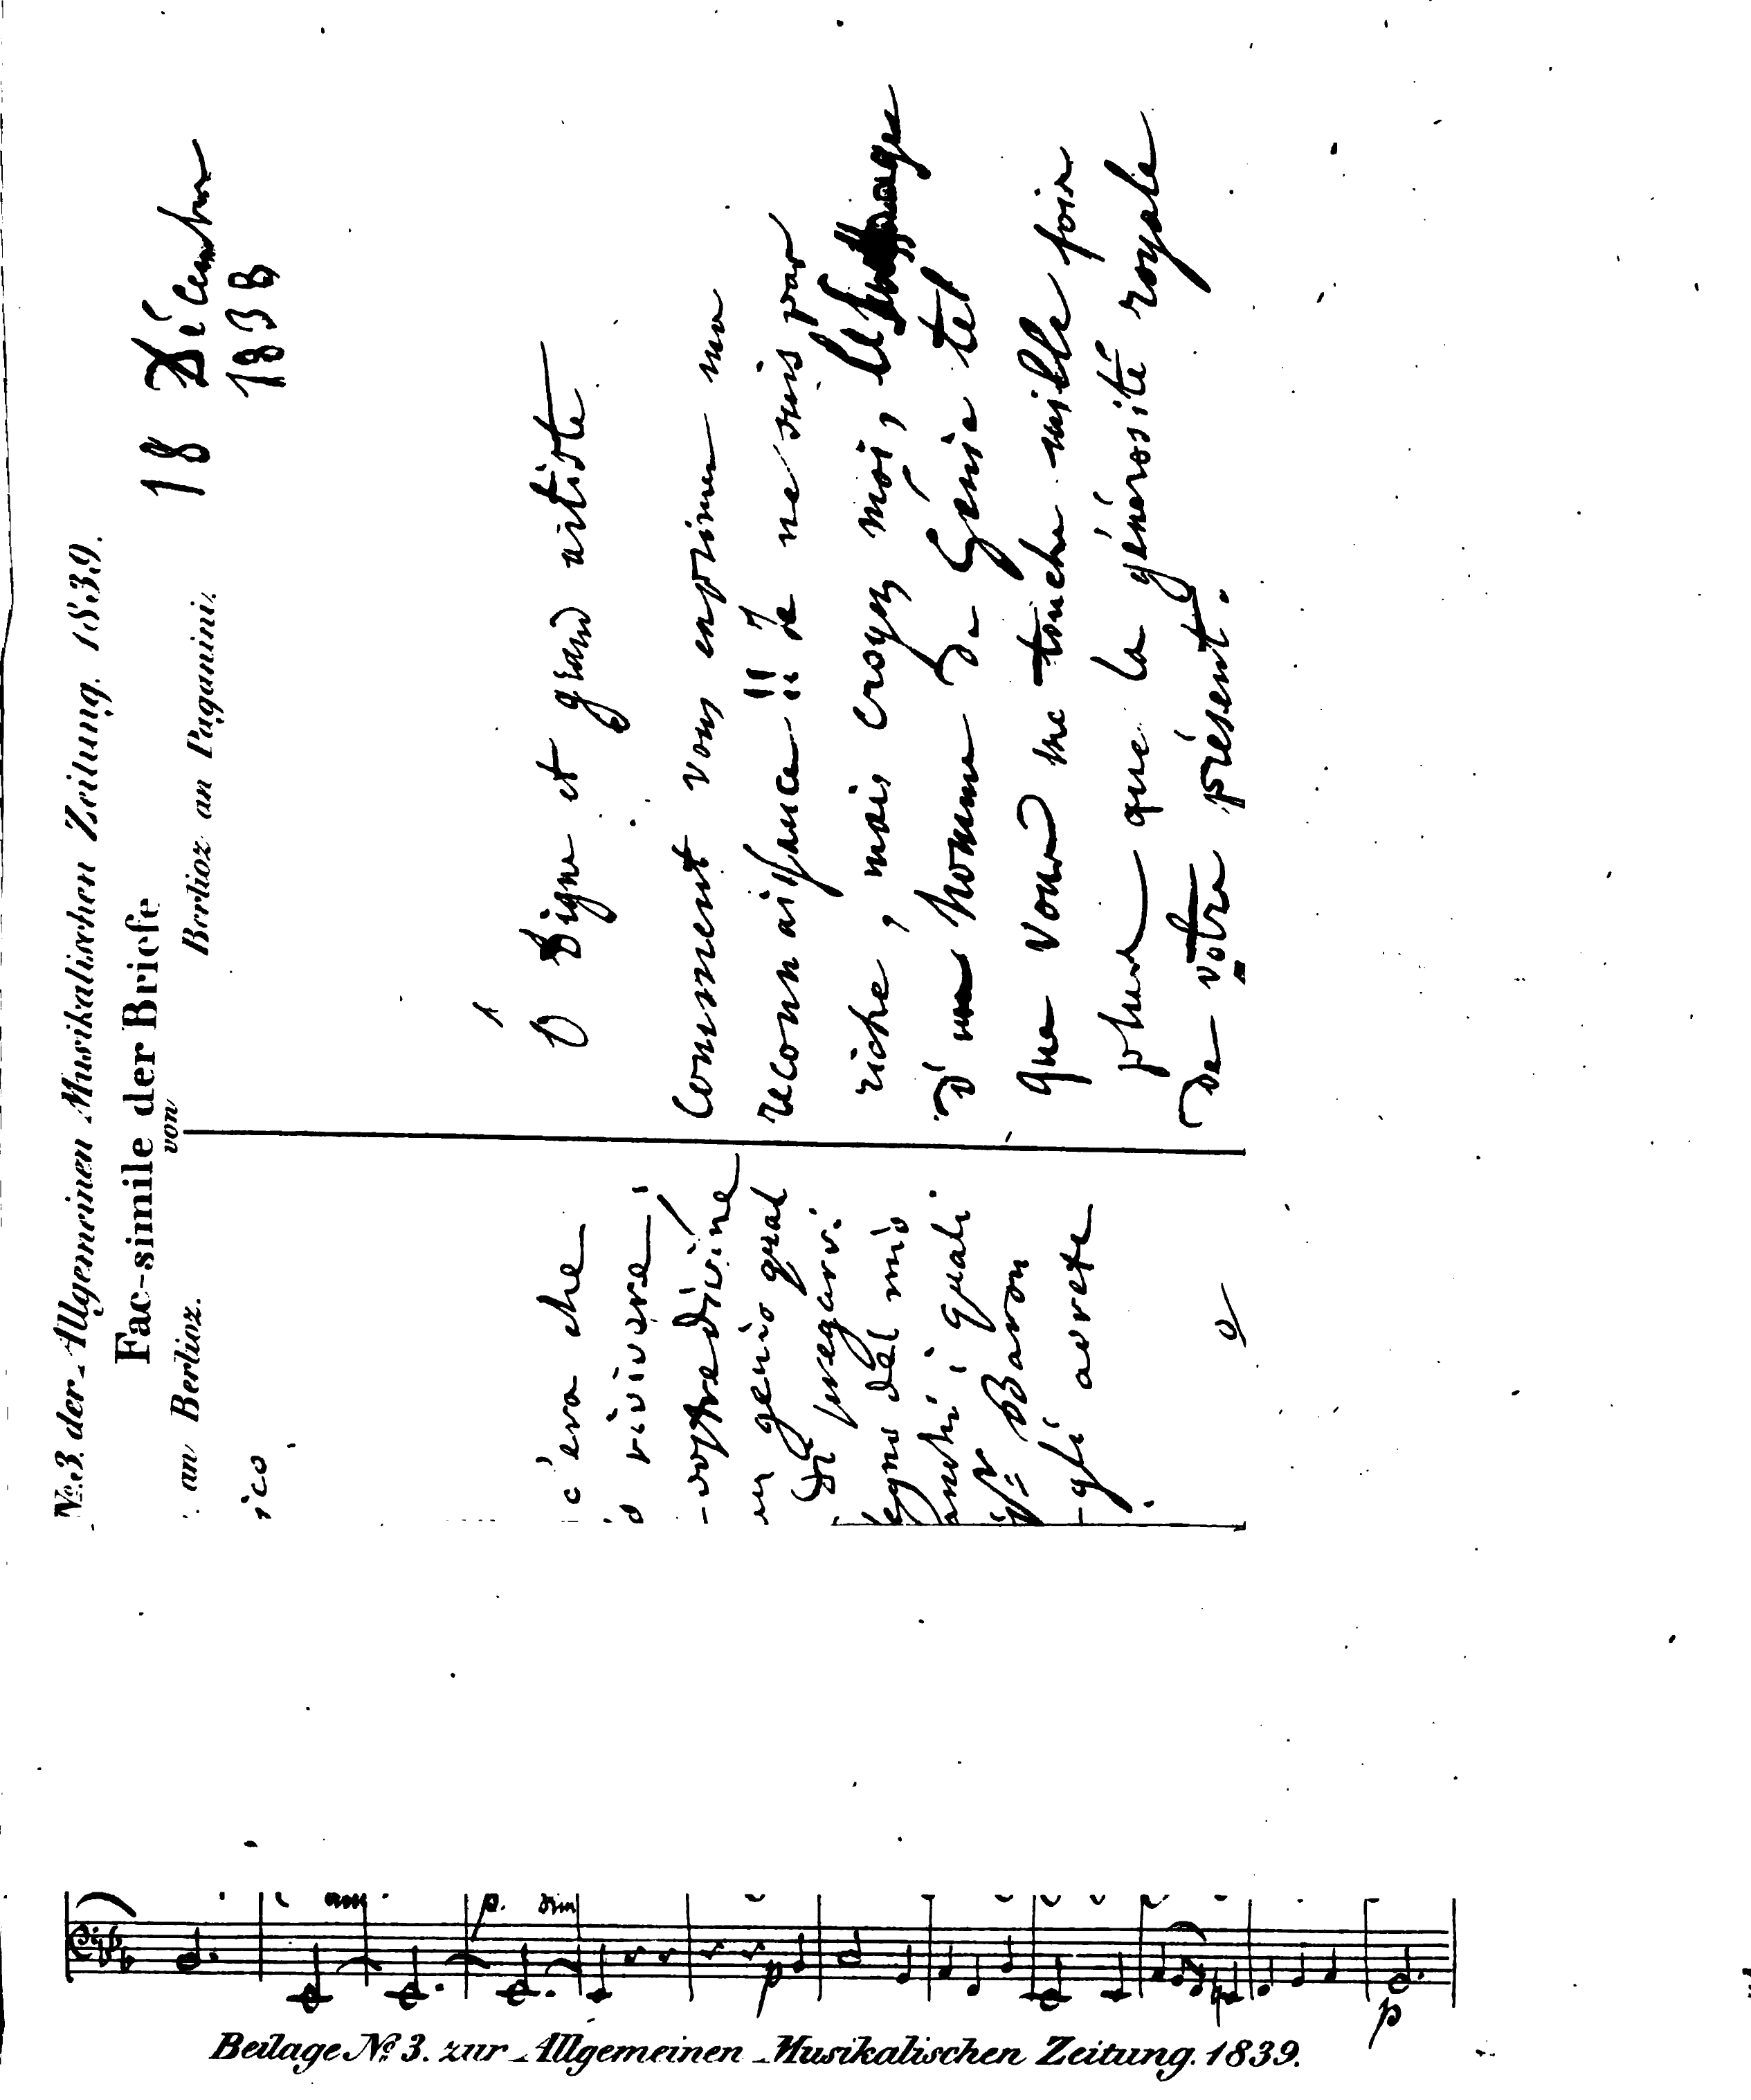 No. 3. der Allgemeinen Musikalischen Zeitung. 1839.
Fac-simile der Briefe
von
an Berlioz.
ico
c'era che
rivivere;
vostre divine
genio qual
di pregarvi
segno del mio
anchi, i quali
Sigr. Baron
gli avrete
Berlioz an Paganini.
18 Décembre
1838
Ô digne et grand artiste
Comment vous exprimer ma
reconnaissance!! Je ne suis pas
riche, mais croyez moi, le suffrage
d'un homme de Génie tel
que vous me touche mille fois
plus que la générosité royale
de votre présent.
p. dim
p
p
Beilage No. 3. zur Allgemeinen Musikalischen Zeitung. 1839.